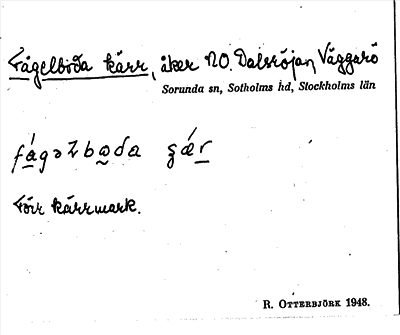 Fågelboda kärr, åker NO. Dalsröjan, Väggarö
Sorunda sn, Sotholms hd, Stockholms län
Förr kärrmark.
R. OTTERBJÖRK 1948.